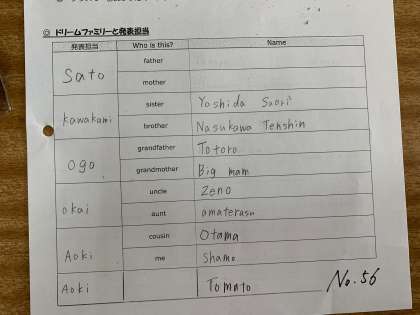 ◎ ドリームファミリーと発表担当
発表担当 Who is this? Name
Sato father
mother
Kawakami sister Yoshida Saori
brother Nasukawa Tenshin
Ogo grandfather Totoro
grandmother Big mam
okai uncle Zeno
aunt amaterasu
Aoki cousin Otama
me Shamo
Aoki Tomato No.56